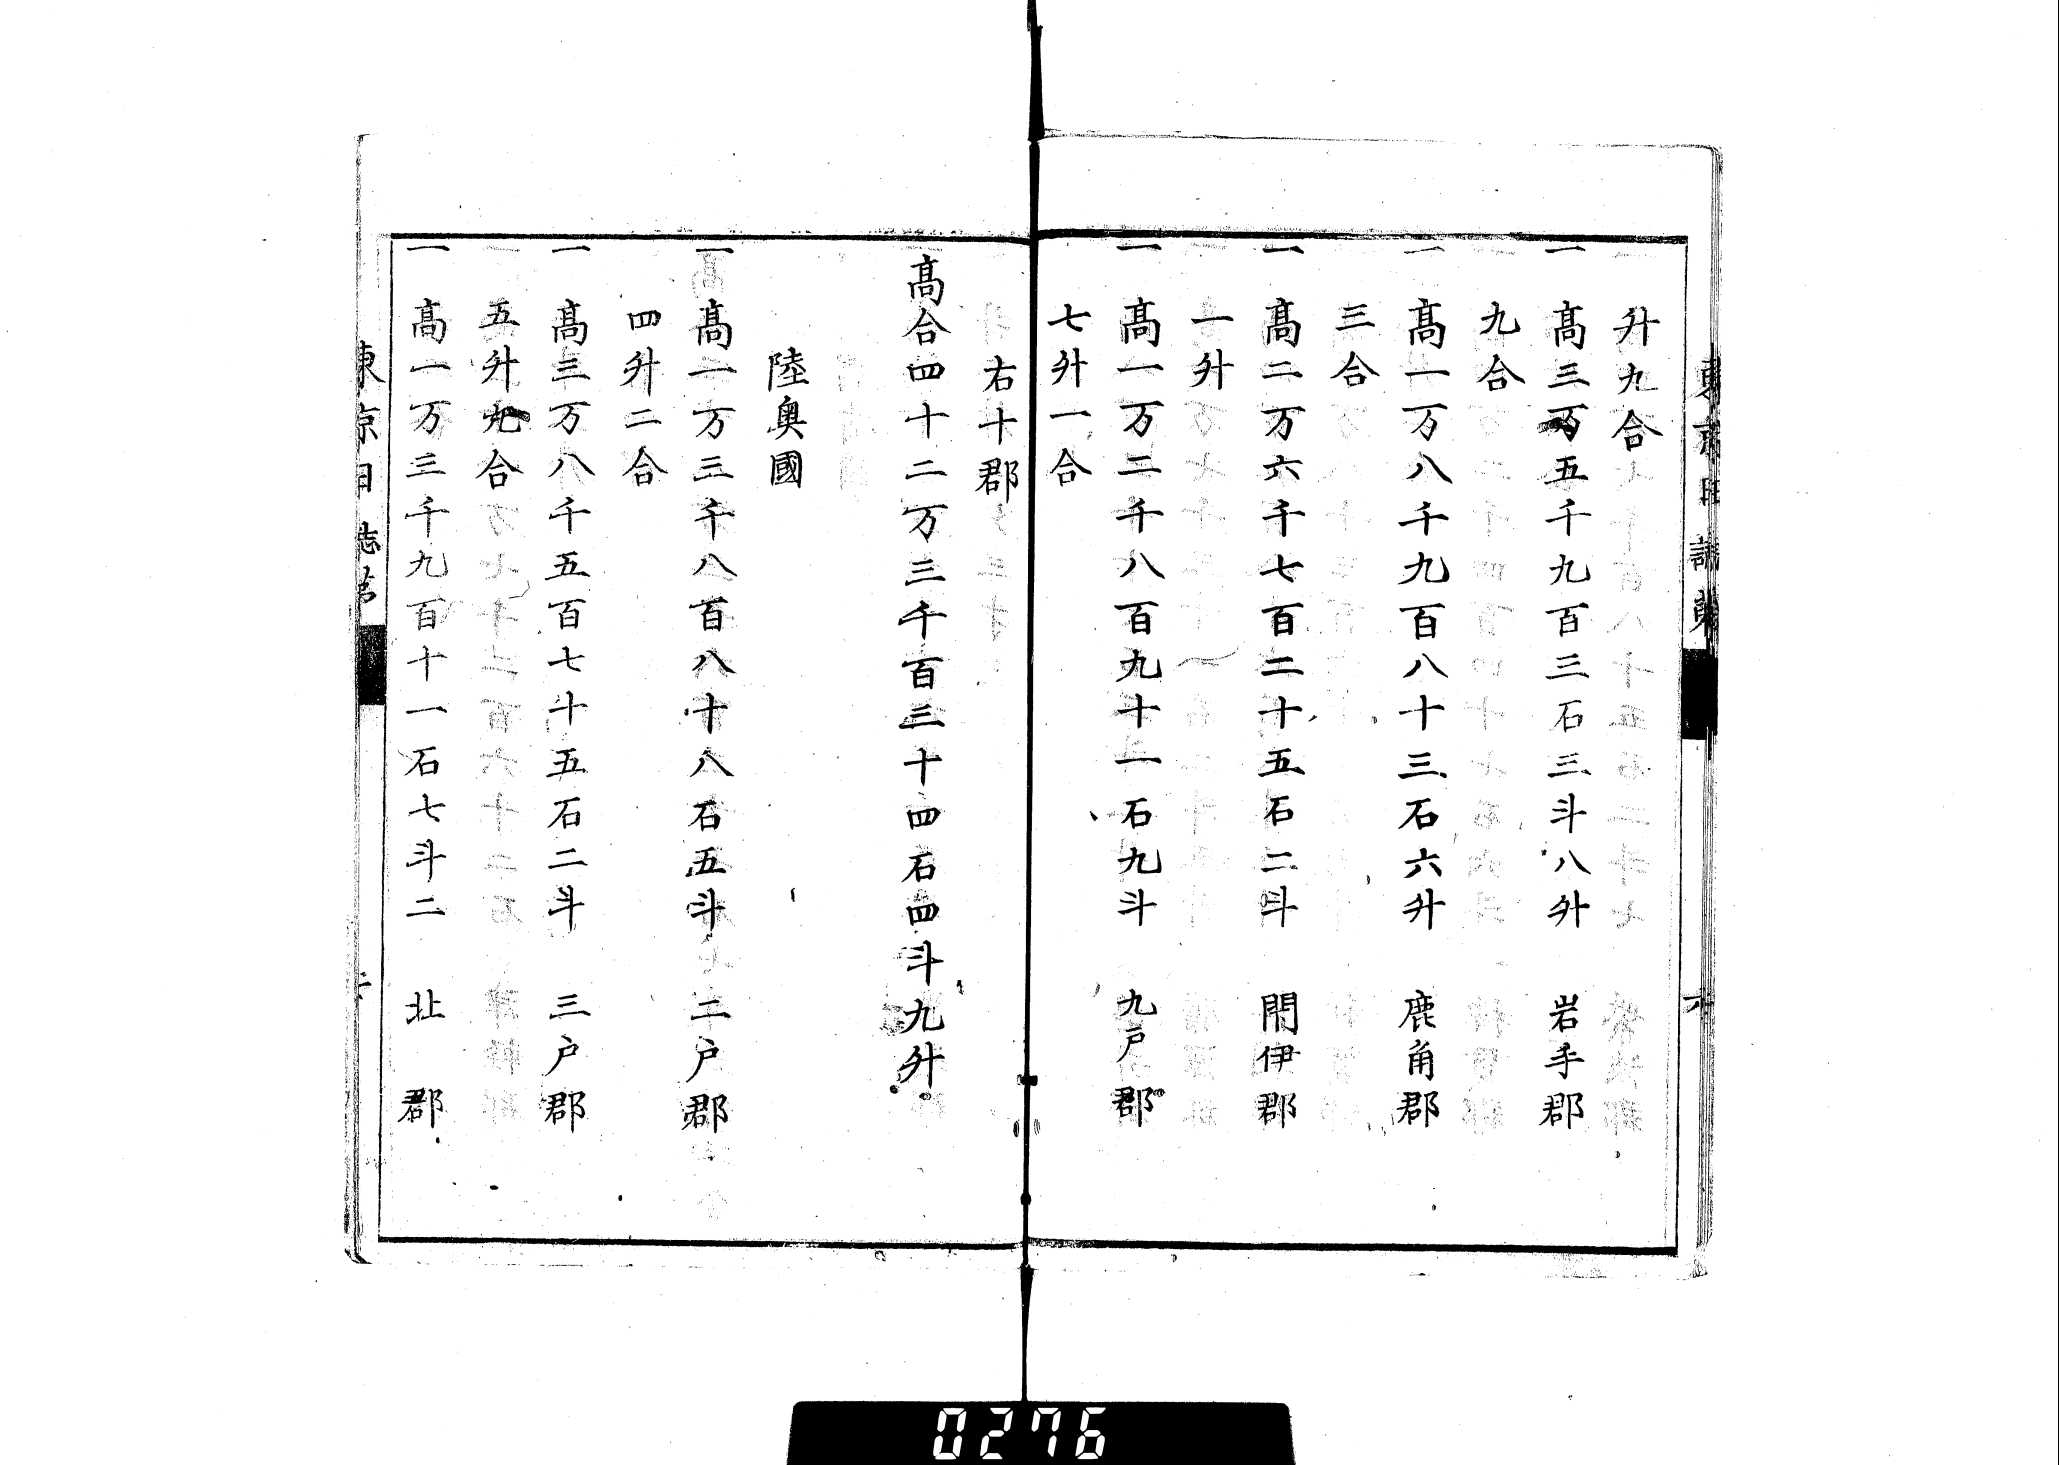 升九合
一 高三万五千九百三石三斗八升 岩手郡
九合
一 高一万八千九百八十三石六升 鹿角郡
三合
一 高二万六千七百二十五石二斗 閉伊郡
一升
一 高一万二千八百九十一石九斗 九戸郡
七升一合
右十郡
高合四十二万三千百三十四石四斗九升
陸奥國
一 高一万三千八百八十八石五斗 二戸郡
四升二合
一 高三万八千五百七十五石二斗 三戸郡
五升九合
一 高一万三千九百十一石七斗二 北郡
東京日誌第
0276